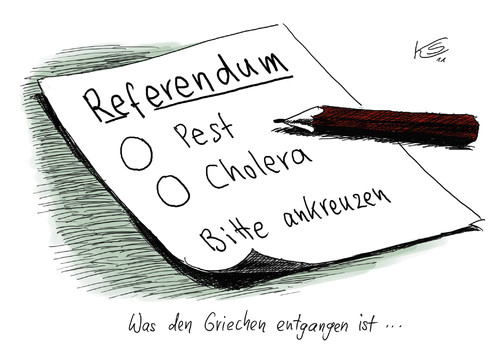 KS
11
Referendum
Pest
Cholera
Bitte ankreuzen
Was den Griechen entgangen ist...